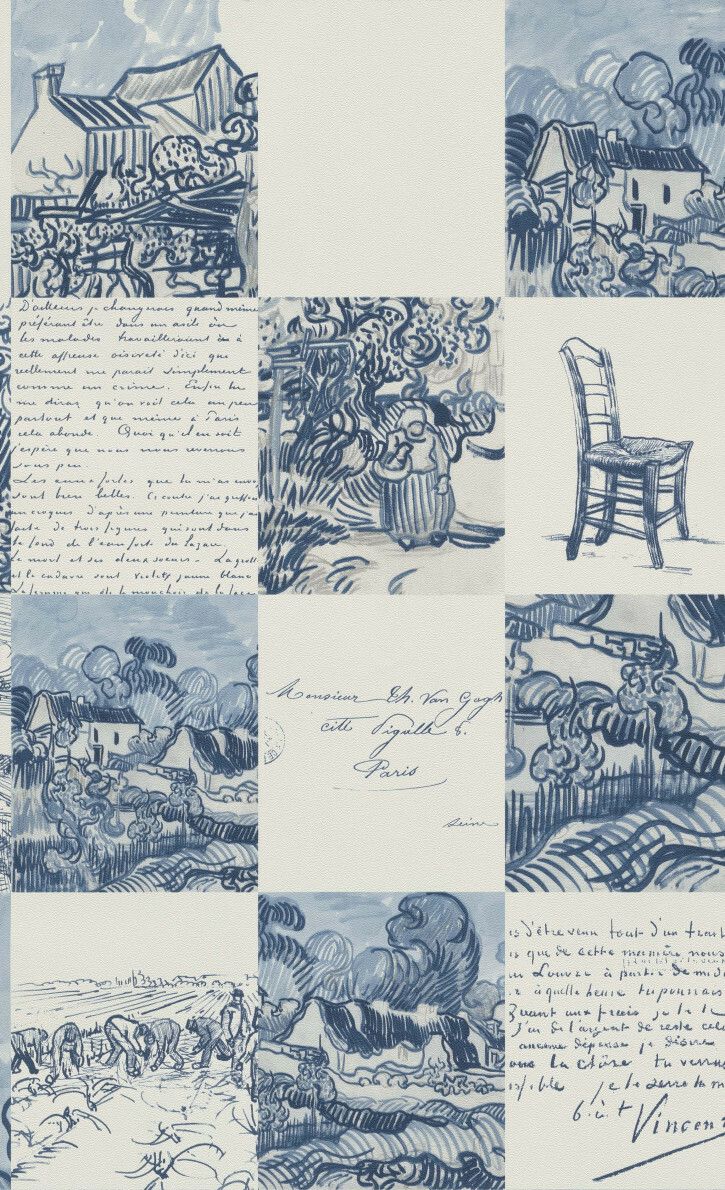 D'ailleurs je changerais quand même
préférant être dans un asile où
les malades travailleraient à
cette affreuse oisiveté d'ici que
réellement me parait simplement
comme un crime. Enfin tu
me diras qu'on voit cela un peu
partout et que même à Paris
cela abonde. Quoi qu'il en soit
j'espère que nous nous reverrons
sous peu.
Les eaux fortes que tu m'as
sont bien belles. Ci contre j'ai
un croquis d'après une peinture que j'ai
faite de trois figures qui sont dans
le fond de l'eau forte du Lazare
le mort et ses deux soeurs. La grotte
et le cadavre sont violet jaune blanc
la femme qui ôte le mouchoir de la face
Monsieur Th. Van Gogh
cité Pigalle 8.
Paris
Seine
is d'être venu tout d'un trait
is que de cette manière nous
au Louvre à partir de midi
à quelle heure tu pourrais
Quant aux frais je te
J'ai de l'argent de reste
aucune dépense je désire
la chère tu verras
je te serre la m
b. à t
Vincent